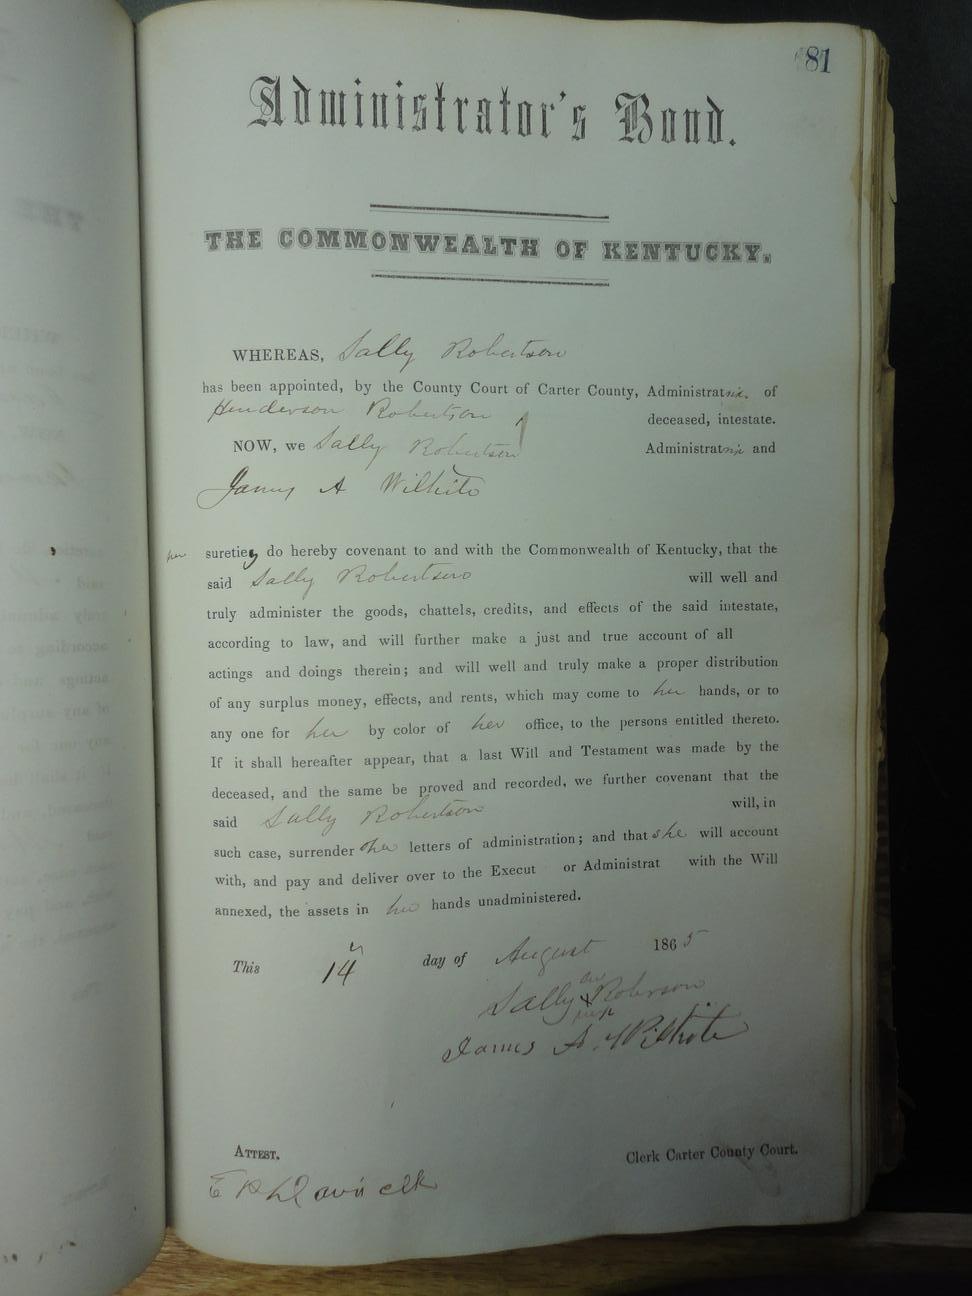 81
Administrator's Bond.
THE COMMONWEALTH OF KENTUCKY.
WHEREAS, Sally Robertson
has been appointed, by the County Court of Carter County, Administratrix of
Henderson Robertson deceased, intestate.
NOW, we Sally Robertson Administratrix and
James A Wilhite
her suretie, do hereby covenant to and with the Commonwealth of Kentucky, that the
said Sally Robertson will well and
truly administer the goods, chattels, credits, and effects of the said intestate,
according to law, and will further make a just and true account of all
actings and doings therein; and will well and truly make a proper distribution
of any surplus money, effects, and rents, which may come to her hands, or to
any one for her by color of her office, to the persons entitled thereto.
If it shall hereafter appear, that a last Will and Testament was made by the
deceased, and the same be proved and recorded, we further covenant that the
said Sally Robertson will, in
such case, surrender her letters of administration; and that she will account
with, and pay and deliver over to the Execut or Administrat with the Will
annexed, the assets in her hands unadministered.
This 14 day of August 1865
Sally X Roberson
James A. Wilhite
ATTEST. Clerk Carter County Court.
clk